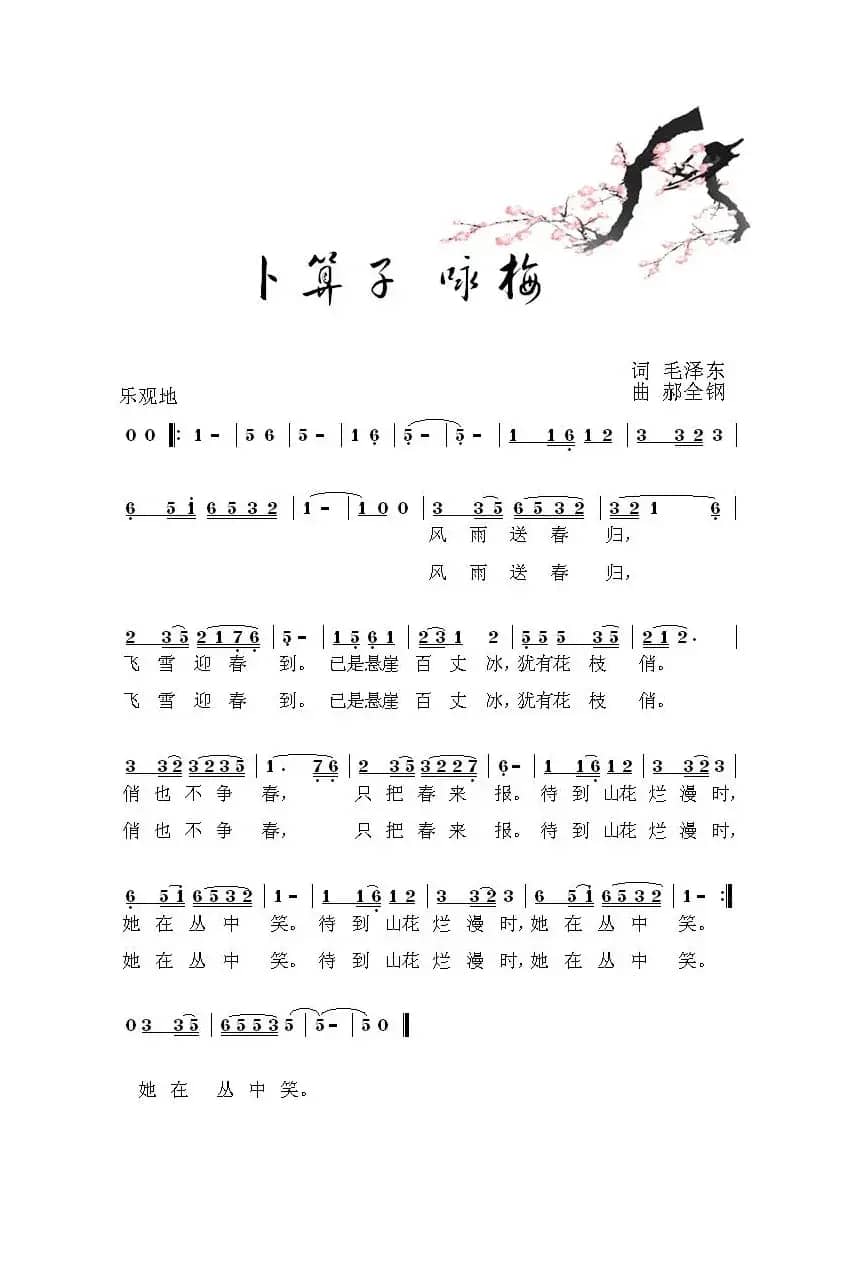 卜算子 咏梅
词 毛泽东
乐观地
曲 郝全钢
0 0 ‖: 1 – | 5 6 | 5 – | 1 6̣ | 5̣ – | 5̣ – | 1 1 6̣ 1 2 | 3 3 2 3 |
6̣ 5 1̇ 6 5 3 2 | 1 – | 1 0 0 | 3 3 5 6 5 3 2 | 3 2 1 6̣ |
风 雨 送 春 归,
风 雨 送 春 归,
2 3 5 2 1 7̣ 6̣ | 5̣ – | 1 5̣ 6̣ 1 | 2 3 1 2 | 5̣ 5 5 3 5 | 2 1 2 . |
飞 雪 迎 春 到。 已是悬崖 百 丈 冰, 犹有花 枝 俏。
飞 雪 迎 春 到。 已是悬崖 百 丈 冰, 犹有花 枝 俏。
3 3 2 3 2 3 5 | 1 . 7̣ 6̣ | 2 3 5 3 2 2 7̣ | 6̣ – | 1 1 6̣ 1 2 | 3 3 2 3 |
俏 也 不 争 春, 只 把 春 来 报。 待 到 山花 烂 漫 时,
俏 也 不 争 春, 只 把 春 来 报。 待 到 山花 烂 漫 时,
6̣ 5 1̇ 6 5 3 2 | 1 – | 1 1 6̣ 1 2 | 3 3 2 3 | 6̣ 5 1̇ 6 5 3 2 | 1 – :‖
她 在 丛 中 笑。 待 到 山花 烂 漫 时, 她 在 丛 中 笑。
她 在 丛 中 笑。 待 到 山花 烂 漫 时, 她 在 丛 中 笑。
0 3 3 5 | 6 5 5 3 5 | 5 – | 5 0 ‖
她 在 丛 中 笑。